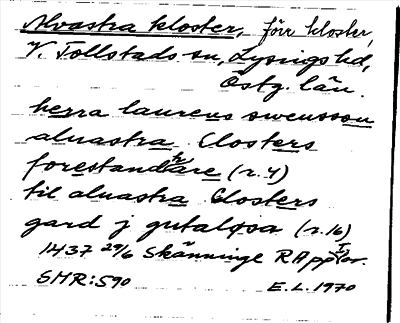 Alvastra kloster, förr kloster,
V. Tollstads sn, Lysings hd,
Östg. län.
herra laurens swensson
aluastra Closters
forestandare (r. 4)
til aluastra Closters
gard j gutaløsa (r. 16)
1437 29/6 Skänninge RApp Or.
SMR: 590
E. L. 1970